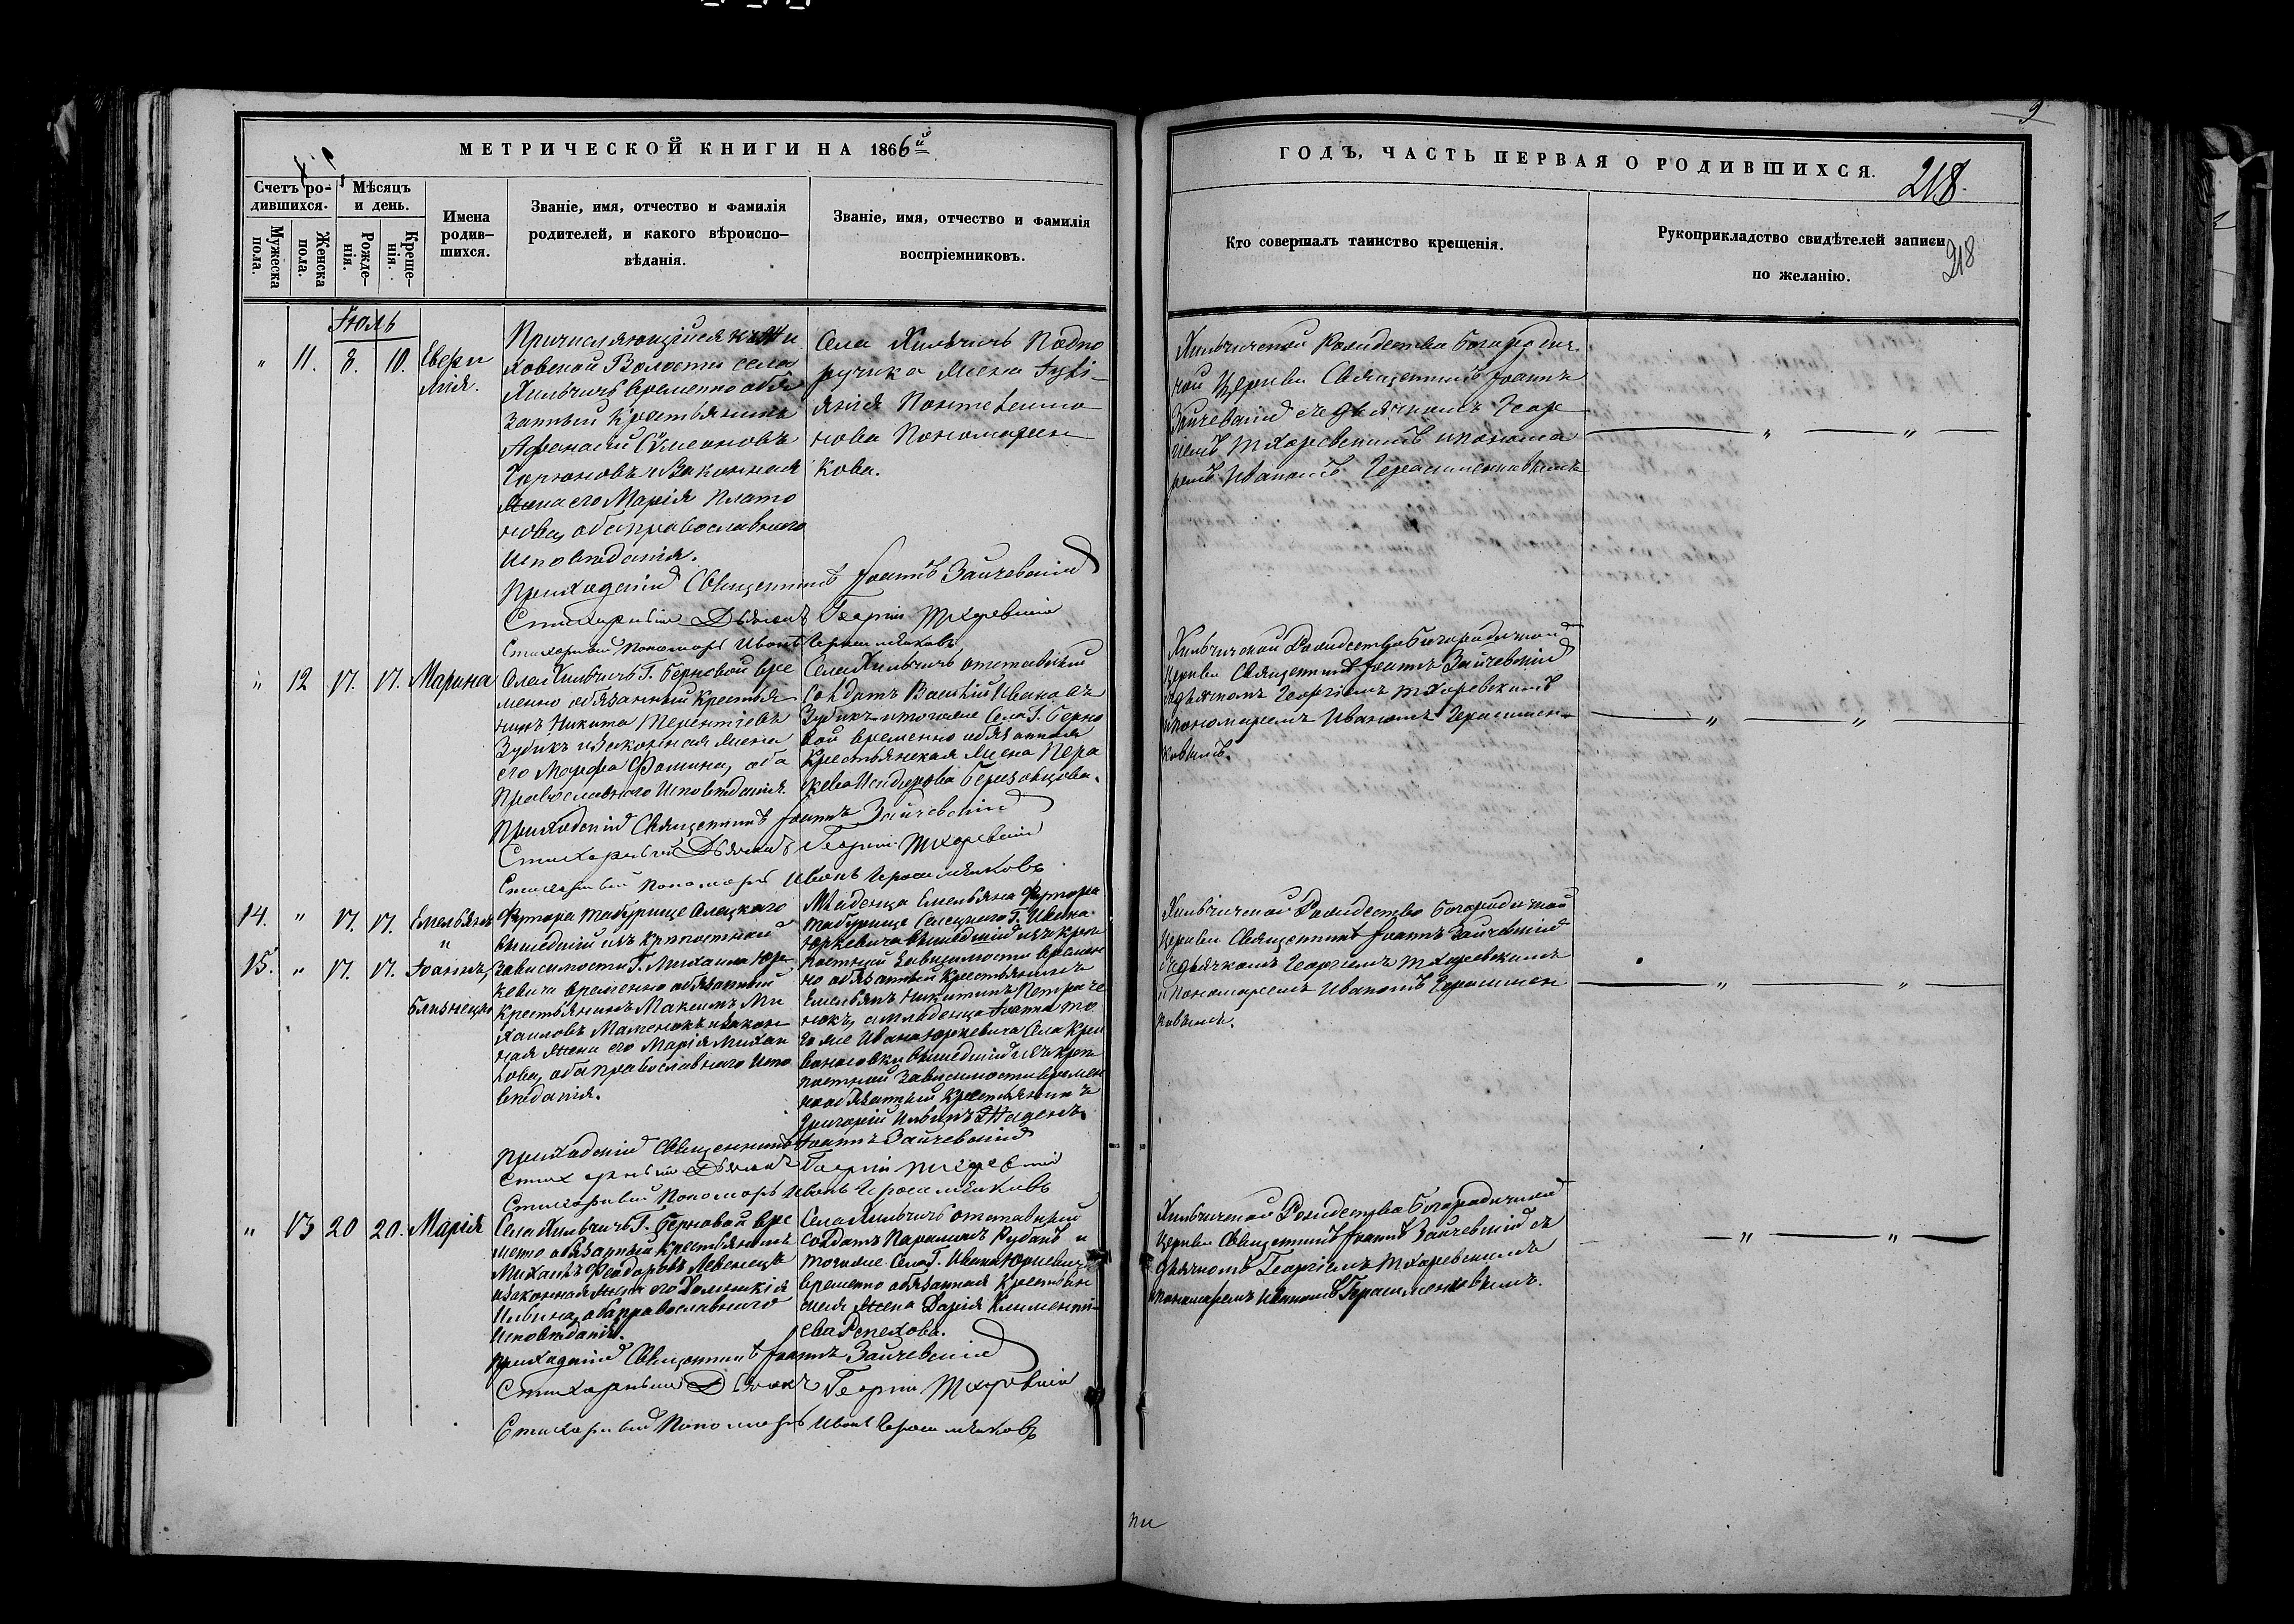 9
МЕТРИЧЕСКОЙ КНИГИ НА 1866й
ГОДЪ, ЧАСТЬ ПЕРВАЯ О РОДИВШИХСЯ.
218.
218
Счетъ ро-
дившихся.
Мужеска
пола.
Женска
пола.
Мѣсяцъ
и день.
Рожде-
нія.
Креще-
нія.
Имена
родив-
шихся.
Званіе, имя, отчество и фамилія
родителей, и какого вѣроиспо-
вѣданія.
Званіе, имя, отчество и фамилія
воспріемниковъ.
Кто совершалъ таинство крещенія.
Рукоприкладство свидѣтелей записи
по желанію.
Іюль
" 11. 8. 10.
Евфи
мія.
Причисляющійся къ
ховской Волости села
Хильчичь временно обя
занный крестьянинъ
Афанасій Симеоновъ
и Законная
жена его Марія Плато
нова, оба православнаго
исповѣданія.
Села Хильчичь Подпо
ручика жена Іулі-
янія Пантелеимо
нова Пономарен
кова.
Хильчичской Рождества Богородич
ной Церкви Священникъ Іоаннъ
Зайчевскій съ дьячкомъ Геор
гіемъ Тхоревскимъ и понома
ремъ Иваномъ Герасименковымъ
Приходскій Священникъ Іоаннъ Зайчевскій
Стихарный Дьячокъ Георгій Тхоревскій
Стихарный Пономарь Иванъ Герасименковъ
" 12 17. 17. Марина
Села Хильчичь Г. Берновой вре
менно обязанный крестья
нинъ Никита Терентіевъ
Зубикъ и Законная жена
его Марфа Фомина, оба
Православнаго Исповѣданія.
Села Хильчичь отставный
Солдатъ Василій Ивановъ
Зубикъ и тогоже Села Г. Берно
вой временно обязанная
Крестьянская жена Пара
скева Исидорова Березовцова.
Хильчичской Рождество Богородичной
Церкви Священникъ Іоаннъ Зайчевскій
съ дьячкомъ Георгіемъ Тхоревскимъ
и пономаремъ Иваномъ Герасимен
ковымъ.
Приходскій Священникъ Іоаннъ Зайчевскій
Стихарный Дьячокъ Георгій Тхоревскій
Стихарный Пономарь Иванъ Герасименковъ
14. " 17. 17. Емельянъ
"
15. " 17. 17. Іоаннъ,
близнецы
Хутора Табурище Селецкаго
вышедшій изъ крѣпостной
зависимости Г. Михаила Юр
кевича временно обязанный
крестьянинъ Максимъ Ми
хаиловъ Маменокъ и закон
ная жена его Марія Михаи
лова, оба православнаго испо
вѣданія.
Младенца Емельяна Хутора
Табурище Селецкаго Г. Ивана
Юркевича вышедшій изъ креп
постной зависимости времен
но обязанный крестьянинъ
Емельянъ Никитинъ Петраче
нокъ, а младенца Іоанна то
гоже Ивана Юркевича Села Кри
воносовки вышедшій изъ креп
постной зависимости времен
но обязанный крестьянинъ
Григорій Ильинъ
Хильчичской Рождество Богородичной
Церкви Священникъ Іоаннъ Зайчевскій
съ дьячкомъ Георгіемъ Тхоревскимъ
и Пономаремъ Иваномъ Герасимен
ковымъ.
Приходскій Священникъ Іоаннъ Зайчевскій
Стихарный Дьячокъ Георгій Тхоревскій
Стихарный Пономарь Иванъ Герасименковъ
" 13 20 20. Марія
Села Хильчичь Г. Берновой вре
менно обязанный крестьянинъ
Михаилъ Феодоровъ Левенецъ
и законная жена его Домникія
Ильина, оба православнаго
Исповѣданія.
Села Хильчичь отставный
солдатъ Рубанъ и
тогоже Села Г. Ивана Юркевича
временно обязанная крестьян
ская жена Дарія Климентi-
ева Репехова.
Хильчичской Рождества Богородичной
Церкви Священникъ Іоаннъ Зайчевскій съ
дьячкомъ Георгіемъ Тхоревскимъ и
пономаремъ Иваномъ Герасименковымъ.
Приходскій Священникъ Іоаннъ Зайчевскій
Стихарный Дьячокъ Георгій Тхоревскій
Стихарный Пономарь Иванъ Герасименковъ